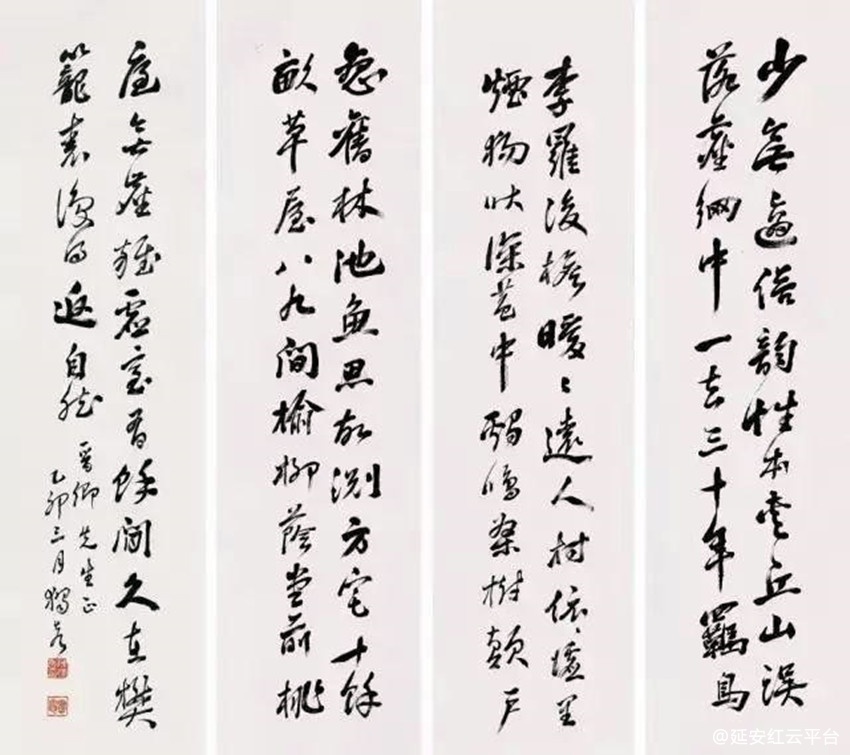 少無適俗韻性本愛丘山誤
落塵網中一去三十年羈鳥
李羅後檐暖〻遠人村依〻墟里
煙狗吠深巷中雞鳴桑樹顛戶
戀舊林池魚思故渕方宅十餘
畝草屋八九間榆柳蔭堂前桃
庭無塵雜虛室有餘閒久在樊
籠裏復得返自然
晉卿先生正
乙卯三月獨秀
@延安红云平台